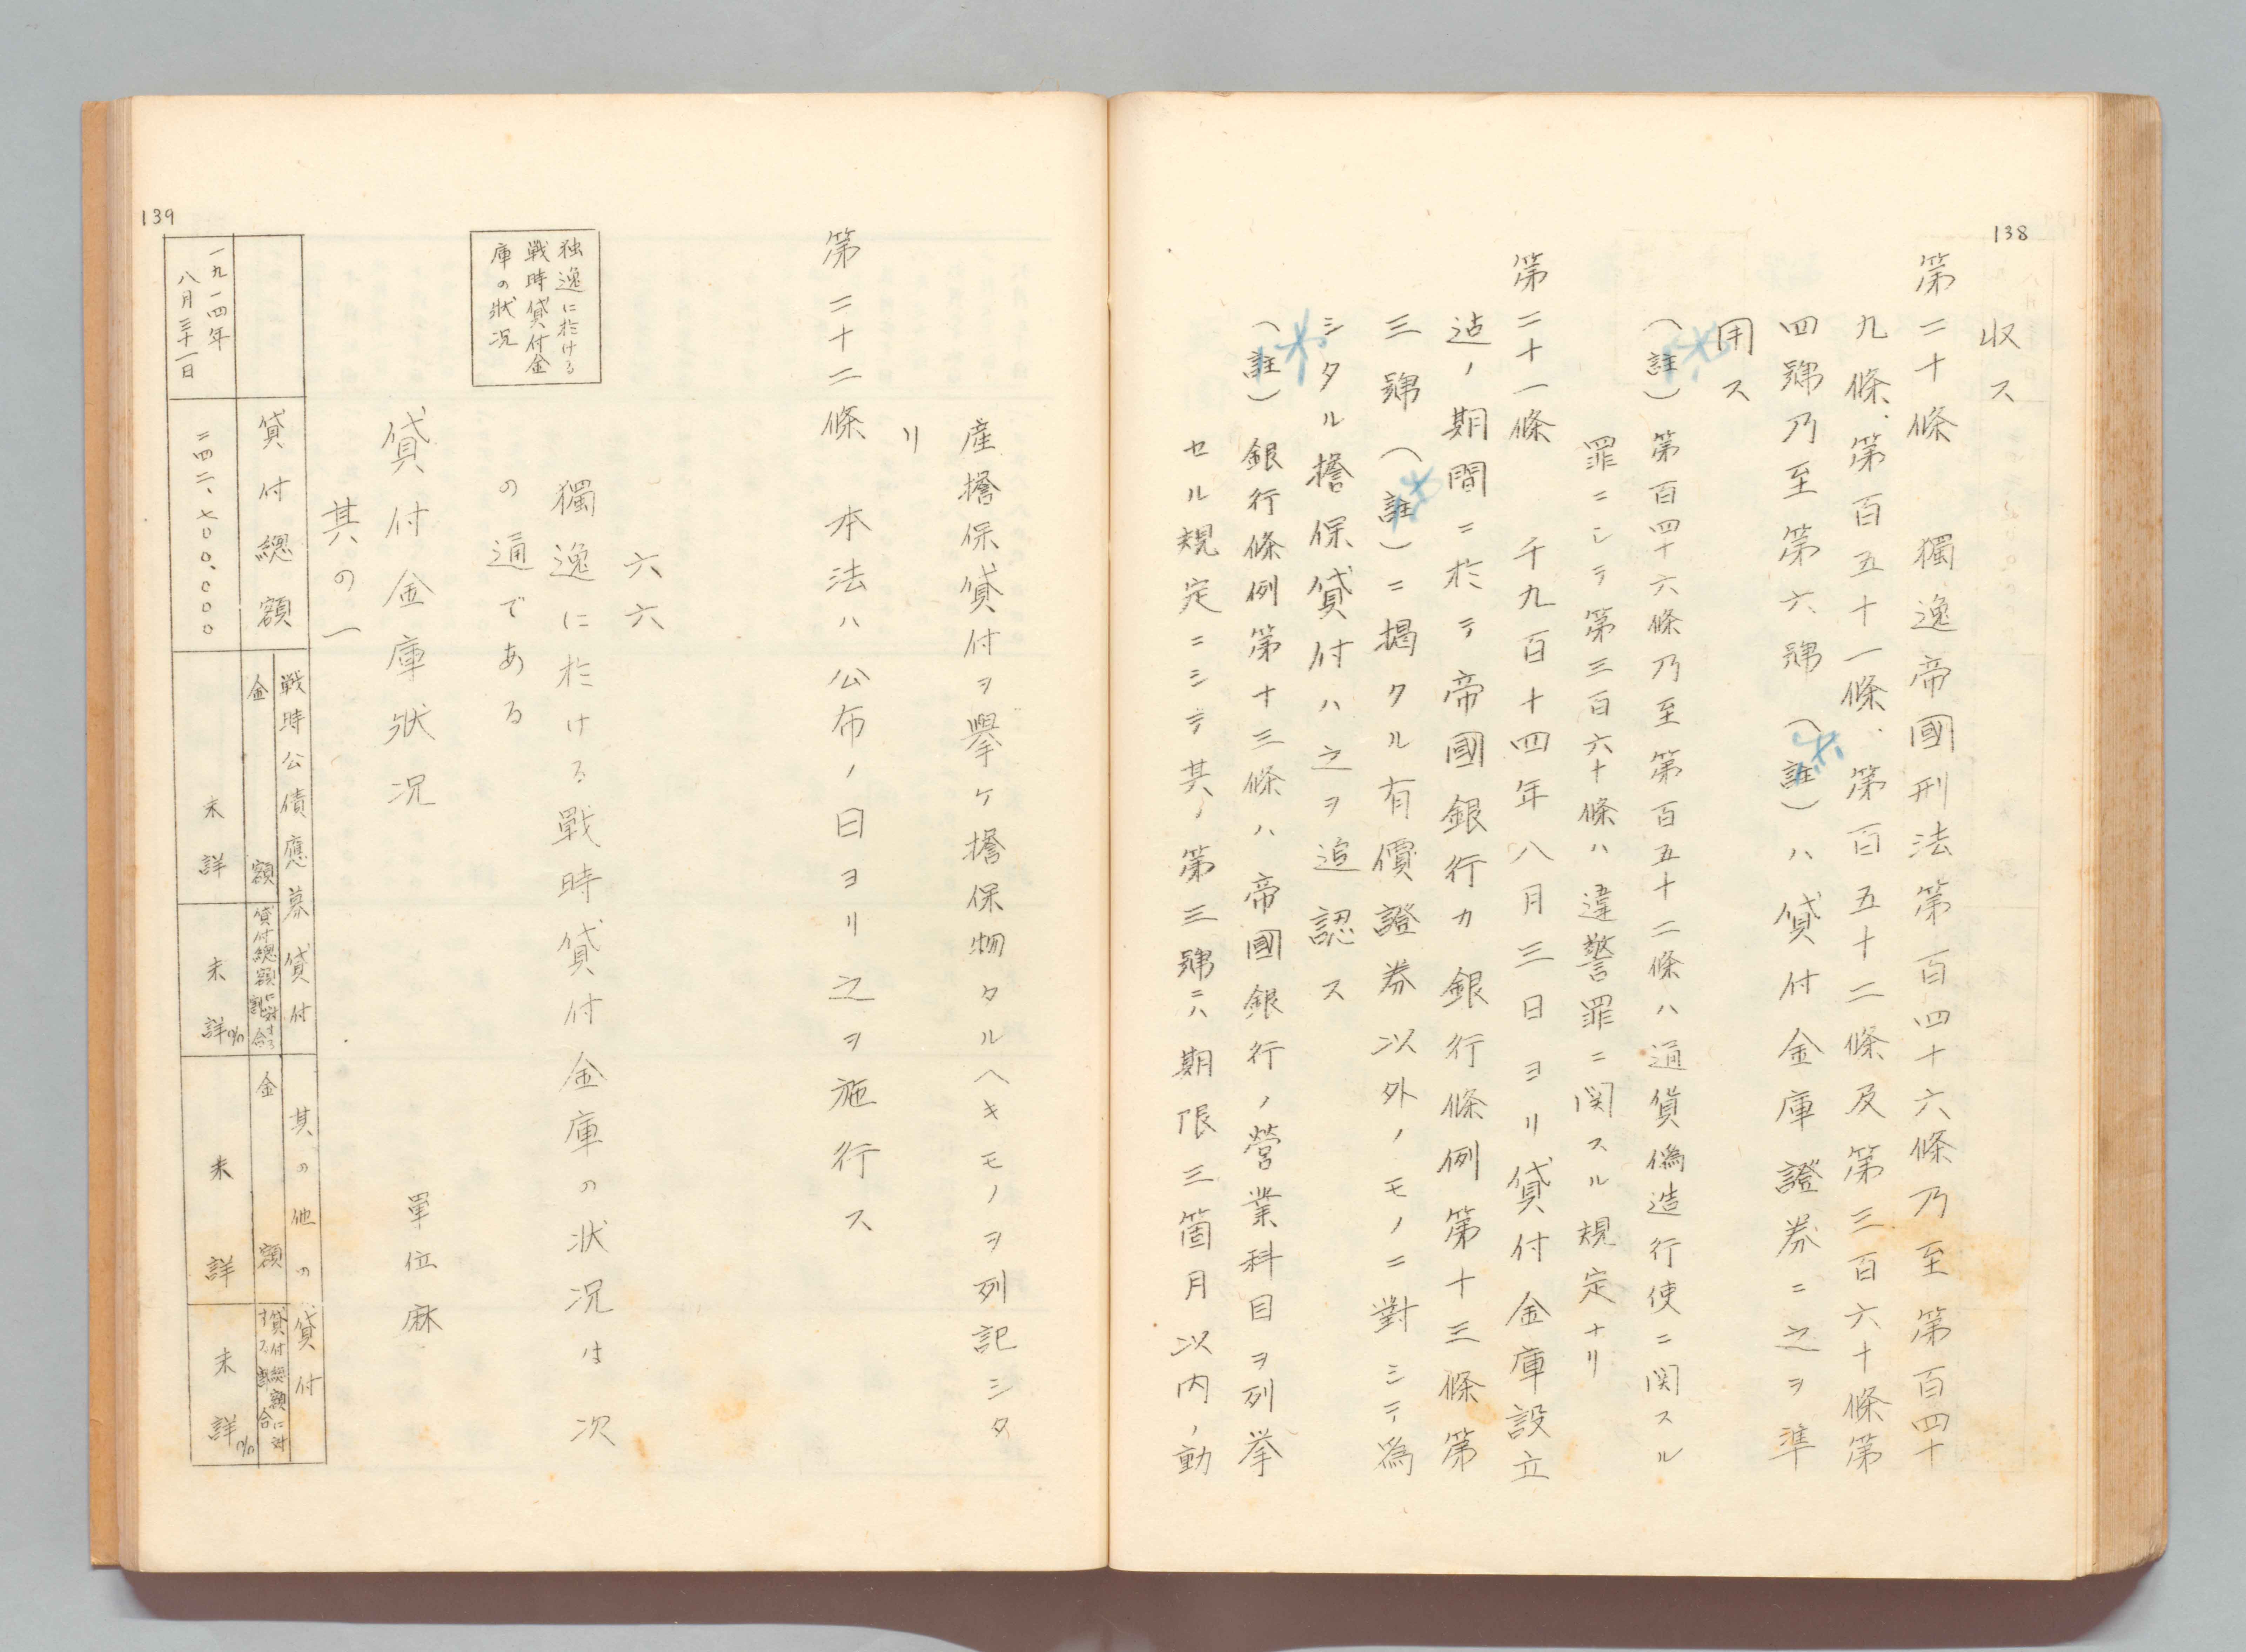 138
収ス
第二十條 獨逸帝國刑法第百四十六條乃至第百四十
九條、第百五十一條、第百五十二條及第三百六十條第
四號乃至第六號(註)ハ貸付金庫證券ニ之ヲ準
用ス
(註)第百四十六條乃至第百五十二條ハ通貨偽造行使ニ関スル
罪ニシテ第三百六十條ハ違警罪ニ関スル規定ナリ
第二十一條 千九百十四年八月三日ヨリ貸付金庫設立
迠ノ期間ニ於テ帝國銀行カ銀行條例第十三條第
三號(註)ニ掲クル有價證券以外ノモノニ對シテ為
シタル擔保貸付ハ之ヲ追認ス
(註)銀行條例第十三條ハ帝國銀行ノ營業科目ヲ列挙
セル規定ニシテ其ノ第三號ニハ期限三箇月以内ノ動
139
産擔保貸付ヲ擧ケ擔保物タルヘキモノヲ列記シタ
リ
第二十二條 本法ハ公布ノ日ヨリ之ヲ施行ス
六六
独逸に於ける
戦時貸付金
庫の状況
獨逸に於ける戰時貸付金庫の状況は次
の通である
貸付金庫状况 單位麻
其の一
貸付總額
戦時公債應募貸付
金額
貸付總額に対する割合
其の他の貸付
金額
貸付總額に対する割合
一九一四年
八月三十一日
二四二、七〇〇、〇〇〇
未詳
未詳%
未詳
未詳%